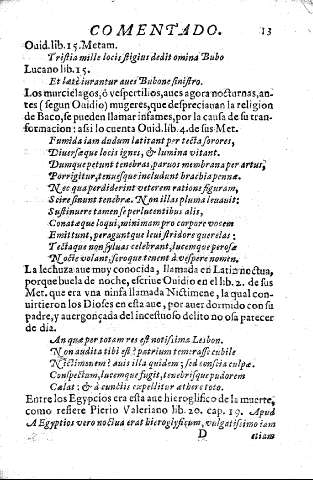 COMENTADO. 13
Ouid. lib. 15. Metam.
Tristia mille locis stigius dedit omina Bubo
Lucano lib. 15.
Et latè iurantur aues Bubone sinistro.
Los murcielagos, ò vespertilios, aues agora nocturnas, an-
tes (segun Ouidio) mugeres, que despreciauan la religion
de Baco, se pueden llamar infames, por la causa de su trans-
formacion: assi lo cuenta Ouid. lib. 4. de sus Met.
Fumida iam dudum latitant per tecta sorores,
Diuersæque locis ignes, & lumina vitant.
Dumque petunt tenebras, paruos membrana per artus,
Porrigitur, tenuesque includunt brachia pennæ.
Nec qua perdiderint veterem ratione figuram,
Scire sinunt tenebræ. Non illas pluma leuauit:
Sustinuere tamen se perlucentibus alis,
Conatæque loqui, minimam pro corpore vocem
Emittunt, peraguntque leui stridore querelas:
Tectaque non syluas celebrant, lucemque perosæ
Nocte volant, seroque tenent à vespere nomen.
La lechuza aue muy conocida, llamada en Latin noctua,
porque buela de noche, escriue Ouidio en el lib. 2. de sus
Met. que era vna ninfa llamada Nictimene, la qual con-
uirtieron los Dioses en esta aue, por auer dormido con su
padre, y auergonçada del incestuoso delito no osa parecer
de dia.
An quæ per totam res est notissima Lesbon.
Non audita tibi est? patrium temerasse cubile
Nictimenem? auis illa quidem; sed conscia culpæ.
Conspectum, lucemque fugit, tenebrisque pudorem
Cælat: & à cunctis expellitur æthere toto.
Entre los Egypcios era esta aue hieroglifico de la muerte,
como refiere Pierio Valeriano lib. 20. cap. 19. Apud
Aegyptios vero noctua erat hieroglyficum, vulgatissimo iam
D etiam